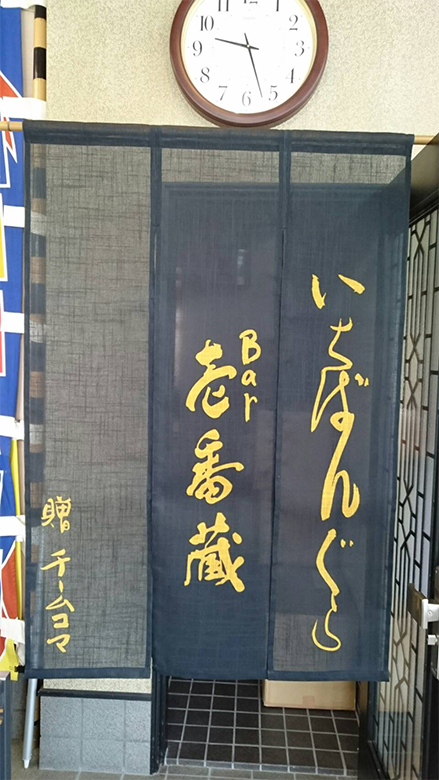 いちばんぐら
Bar
壱番蔵
贈 チームコマ
10
9
8
7
6
5
4
3
2